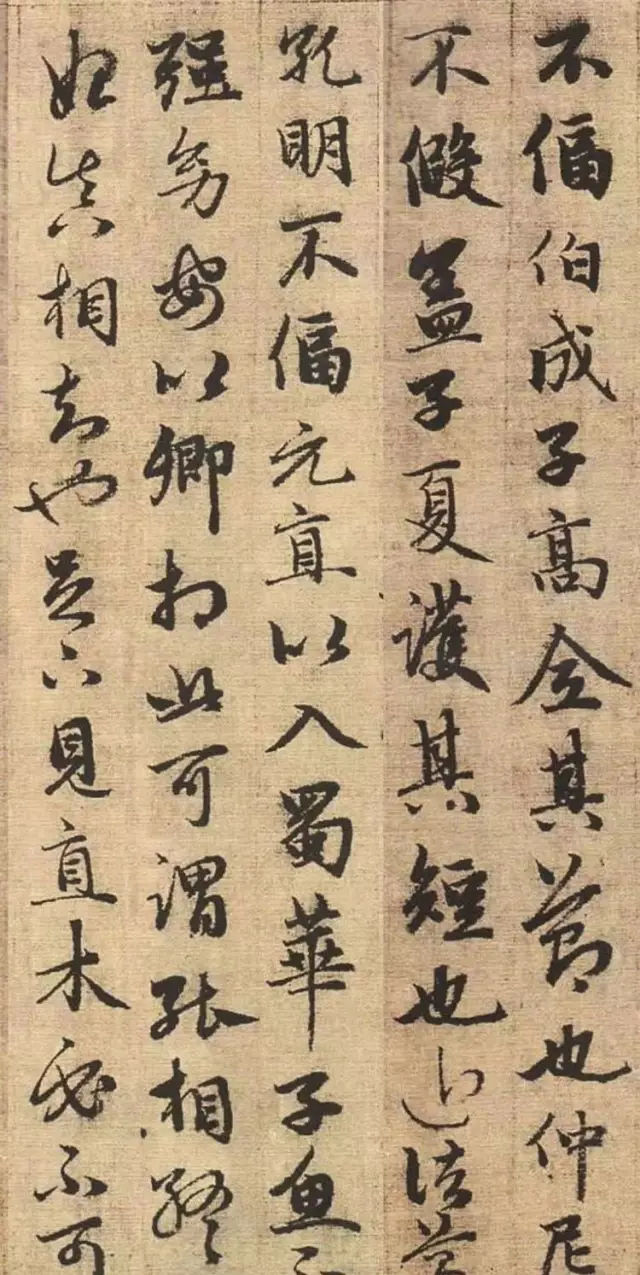 不偪伯成子高全其節也仲尼
不假盖子夏護其短也近諸葛
孔明不偪元直以入蜀華子魚不
強幼安以卿相此可謂能相終
始真相知也足下見直木必不可